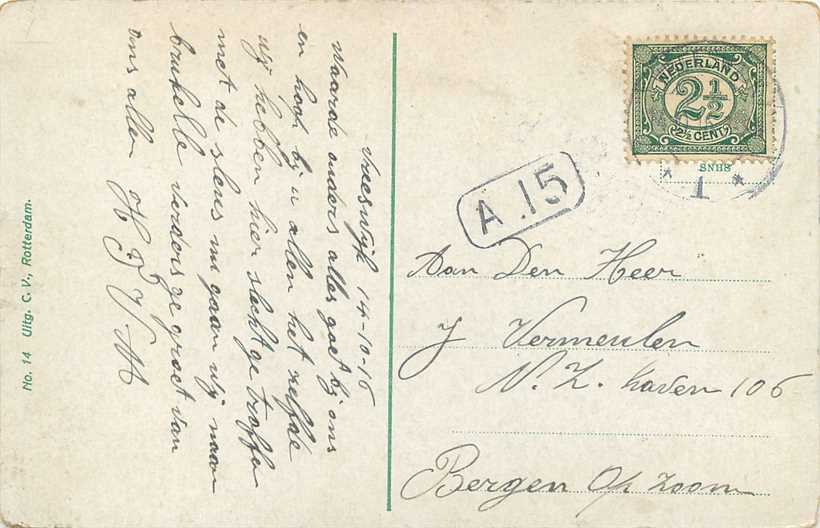 Vreeswijk 14-10-16
Waarde ouders alles goet bij ons
en hoop bij u allen het zelfde
wij hebben hier slecht ge troffen
met de sleus nu gaan wij naar
verders ge groet van
ons allen H J V M
No. 14 Uitg. C. V., Rotterdam.
NEDERLAND
2½
2½ CENT
SNHS
* 1 *
A.15
Aan Den Heer
J Vermeulen
N. Z. haven 106
Bergen Op Zoom